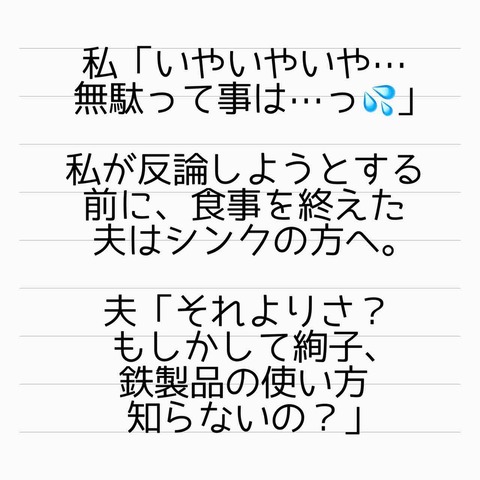 私「いやいやいや…
無駄って事は…っ💦」
私が反論しようとする
前に、食事を終えた
夫はシンクの方へ。
夫「それよりさ？
もしかして絢子、
鉄製品の使い方
知らないの？」